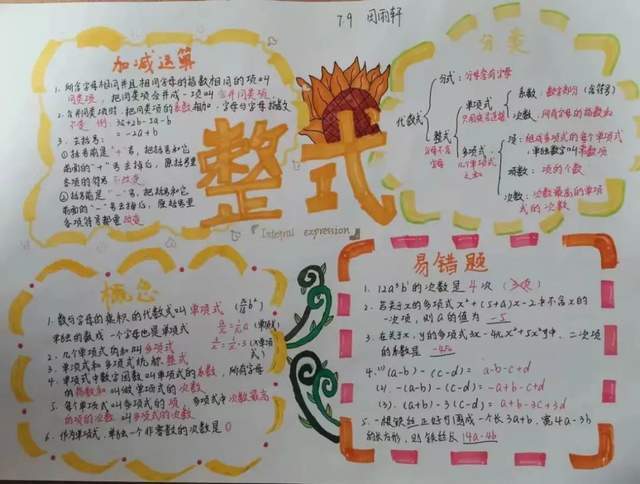 7.9 闵雨轩
加减运算
1、所含字母相同并且相同字母的指数相同的项叫
同类项，把同类项合并成一项叫合并同类项
2、合并同类项时，把同类项的系数相加，字母与字母指数
不变 例：3a+2b-2a-b
= -2a+b
3、去括号：
①括号前是"+"号，把括号和它
前面的"+"号去掉后，原括号里
各项的符号不改变
②括号前是"-"号，把括号和它
前面的"-"号去掉后，原括号里
各项符号都要改变
整式
『Integral expression』
分类
代数式
分式：分母含有字母
整式
分母不含
字母
单项式
只有乘法运算
系数：数字部分（含符号）
次数：所有字母的指数和
多项式
几个单项式
之和
项：组成多项式的每个单项式
，单独数字叫常数项
项数：项的个数
次数：次数最高的单项
式的次数
概念
1、数与字母的乘积的代数式叫单项式
单独的数或一个字母也是单项式
2、几个单项式的和叫多项式
3、单项式和多项式统称整式
4、单项式中数字因数叫单项式的系数，所有字母
的指数和叫做单项式的次数
5、每个单项式叫多项式的项，多项式中次数最高
的项的次数叫多项式的次数
6、作为单项式，单独一个非零数的次数是0
易错题
1、12a³b¹的次数是4次
2、若关于x的多项式x²+(5+a)x-2中不含x的
一次项，则a的值为 -5
3、在关于x，y的多项式
的系数是
4.(1) (a-b)-(c-d)= a-b-c+d
(2). -(a-b)-(c-d)= -a+b-c+d
(3). (a+b)-3(c-d)= a+b-3c+3d
5、一根铁丝正好可围成一个长3a+b，宽4a-3b
的长方形，则铁丝长 14a-4b